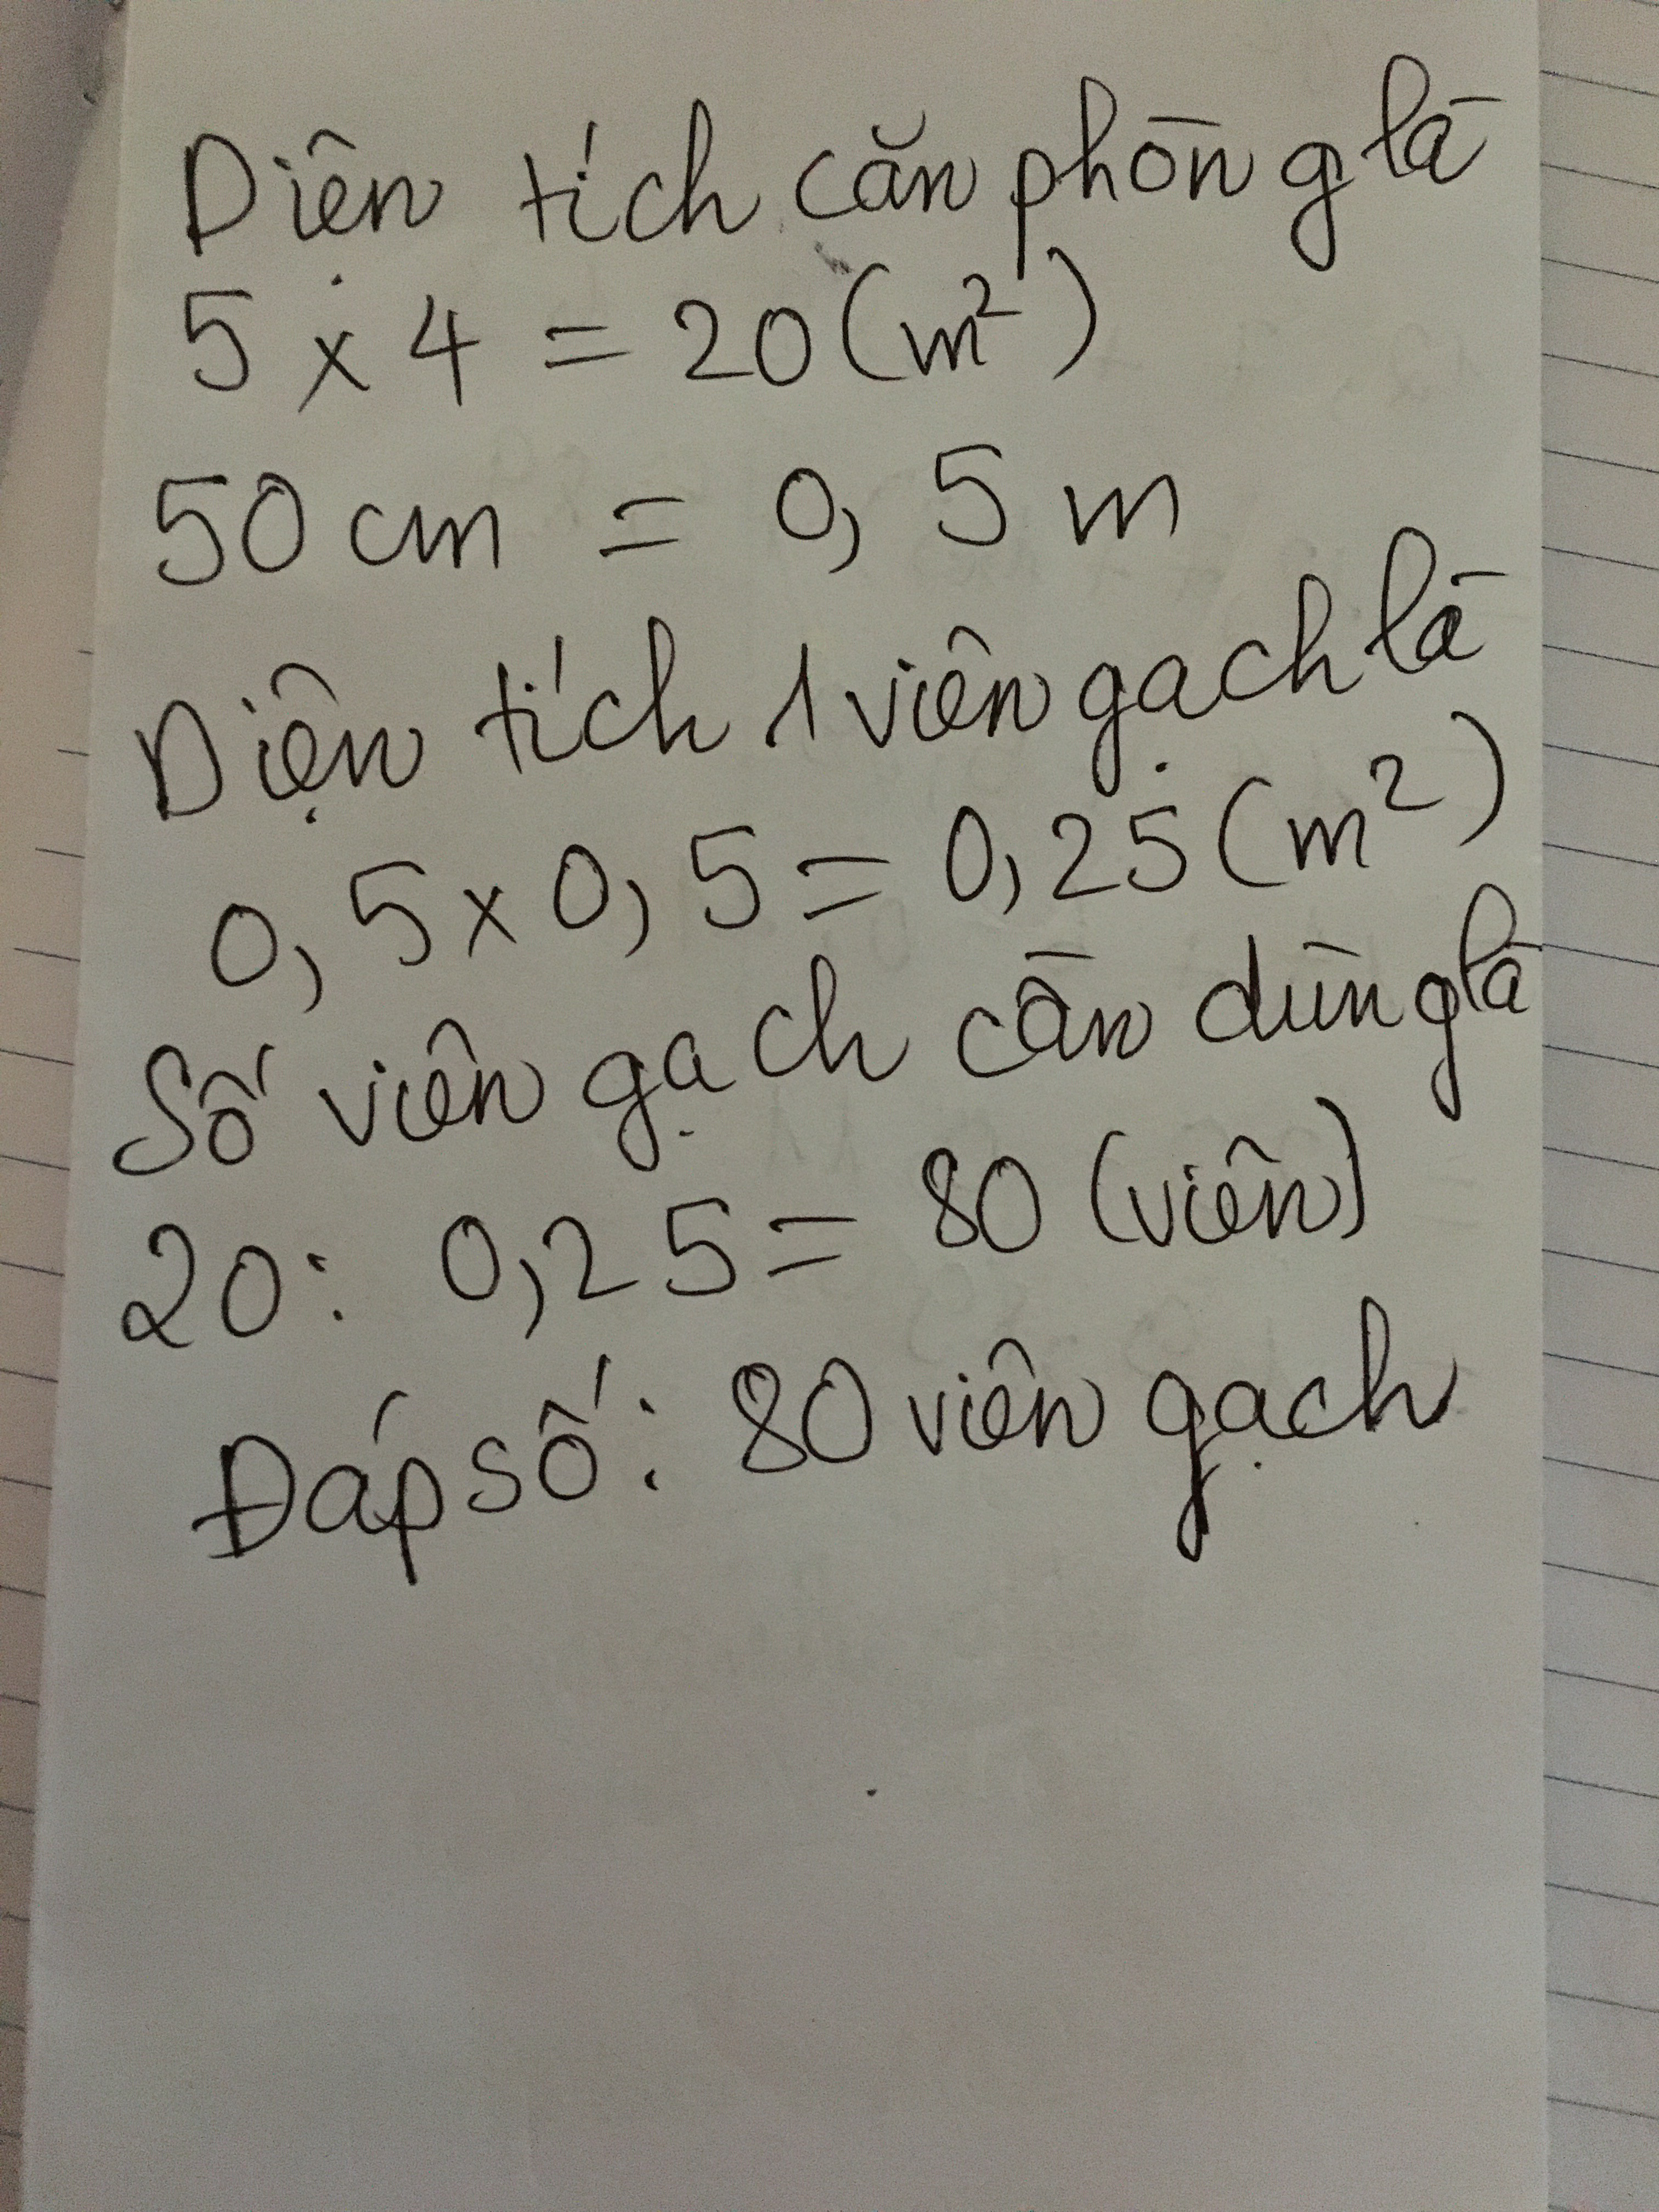 Diện tích căn phòng là
5 x 4 = 20 (m²)
50 cm = 0,5 m
Diện tích 1 viên gạch là
0,5 x 0,5 = 0,25 (m²)
Số viên gạch cần dùng là
20 : 0,25 = 80 (viên)
Đáp số: 80 viên gạch